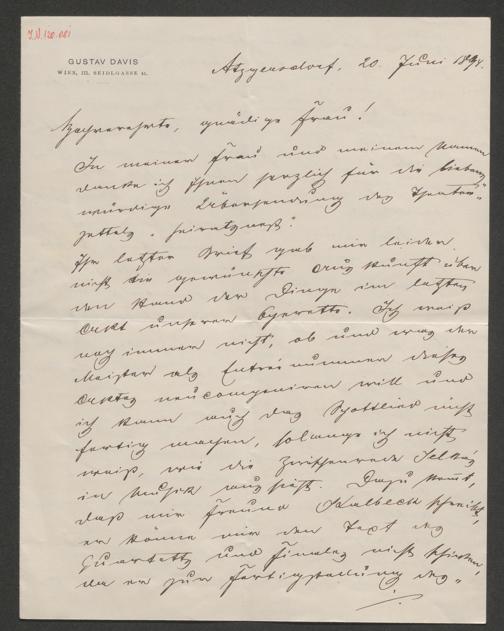 I.N. 120.001
GUSTAV DAVIS
WIEN, III. SEIDLGASSE
Atzgersdorf, 20. Juni 1894.
Hochverehrte, gnädige Frau!
In meiner Frau und meinem Namen
danke ich Ihnen herzlich für die liebens-
würdige Übersendung des Theater-
zettels „Heiratsnest".
Ihr letzter Brief gab mir leider
nicht die gewünschte Auskunft über
den Stand der Dinge im letzten
Ackt unserer Operette. Ich weiß
noch immer nicht, ob und was der
Meister als Entréenummer dieses
Acktes neu componiren will und
ich kann auch das Spottlied nicht
fertig machen, solange ich nicht
weiß, wie die Zwischenrede Jelkas
in Musik aussieht. Dazu kommt,
daß mir Freund Kalbeck schreibt,
er könne mir den Text des
Quartetts und Finales nicht schicken,
da er zur Fertigstellung des